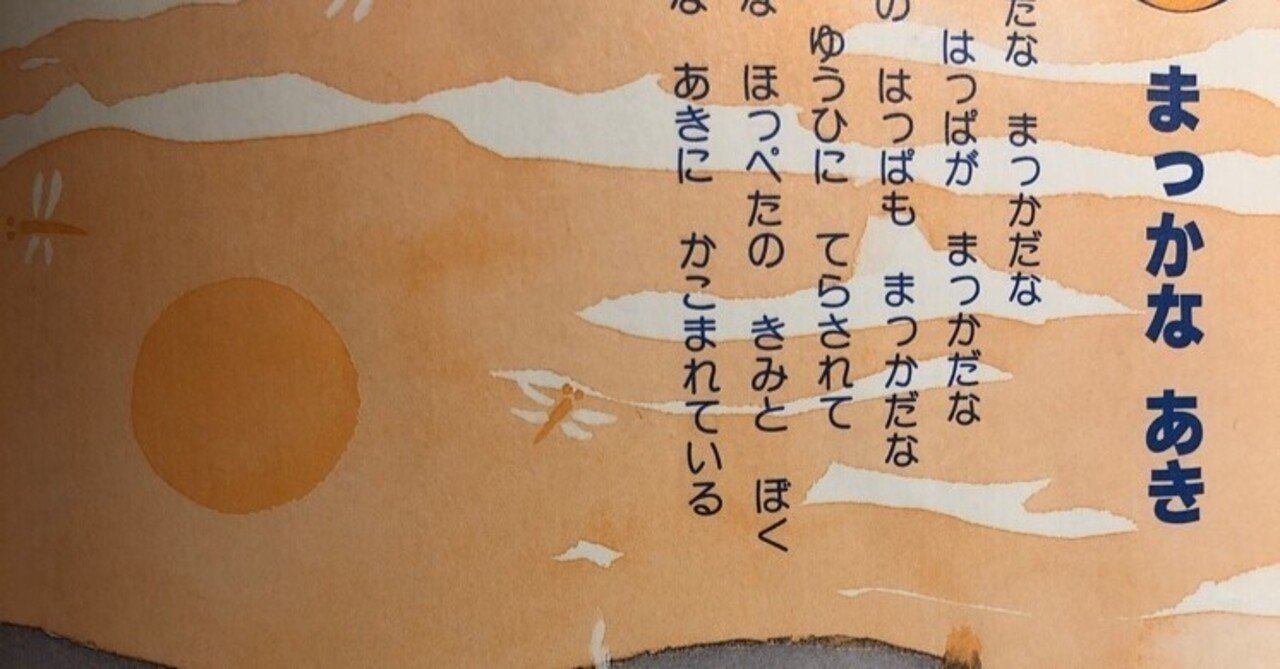 まっかな あき
だな まっかだな
はっぱが まっかだな
の はっぱも まっかだな
ゆうひに てらされて
な ほっぺたの きみと ぼく
な あきに かこまれている